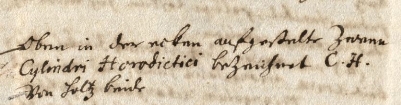 Oben in der ecken aufgestelte Zween
Cylindri Horodictici bezaichnet C. H.
Von holtz beide